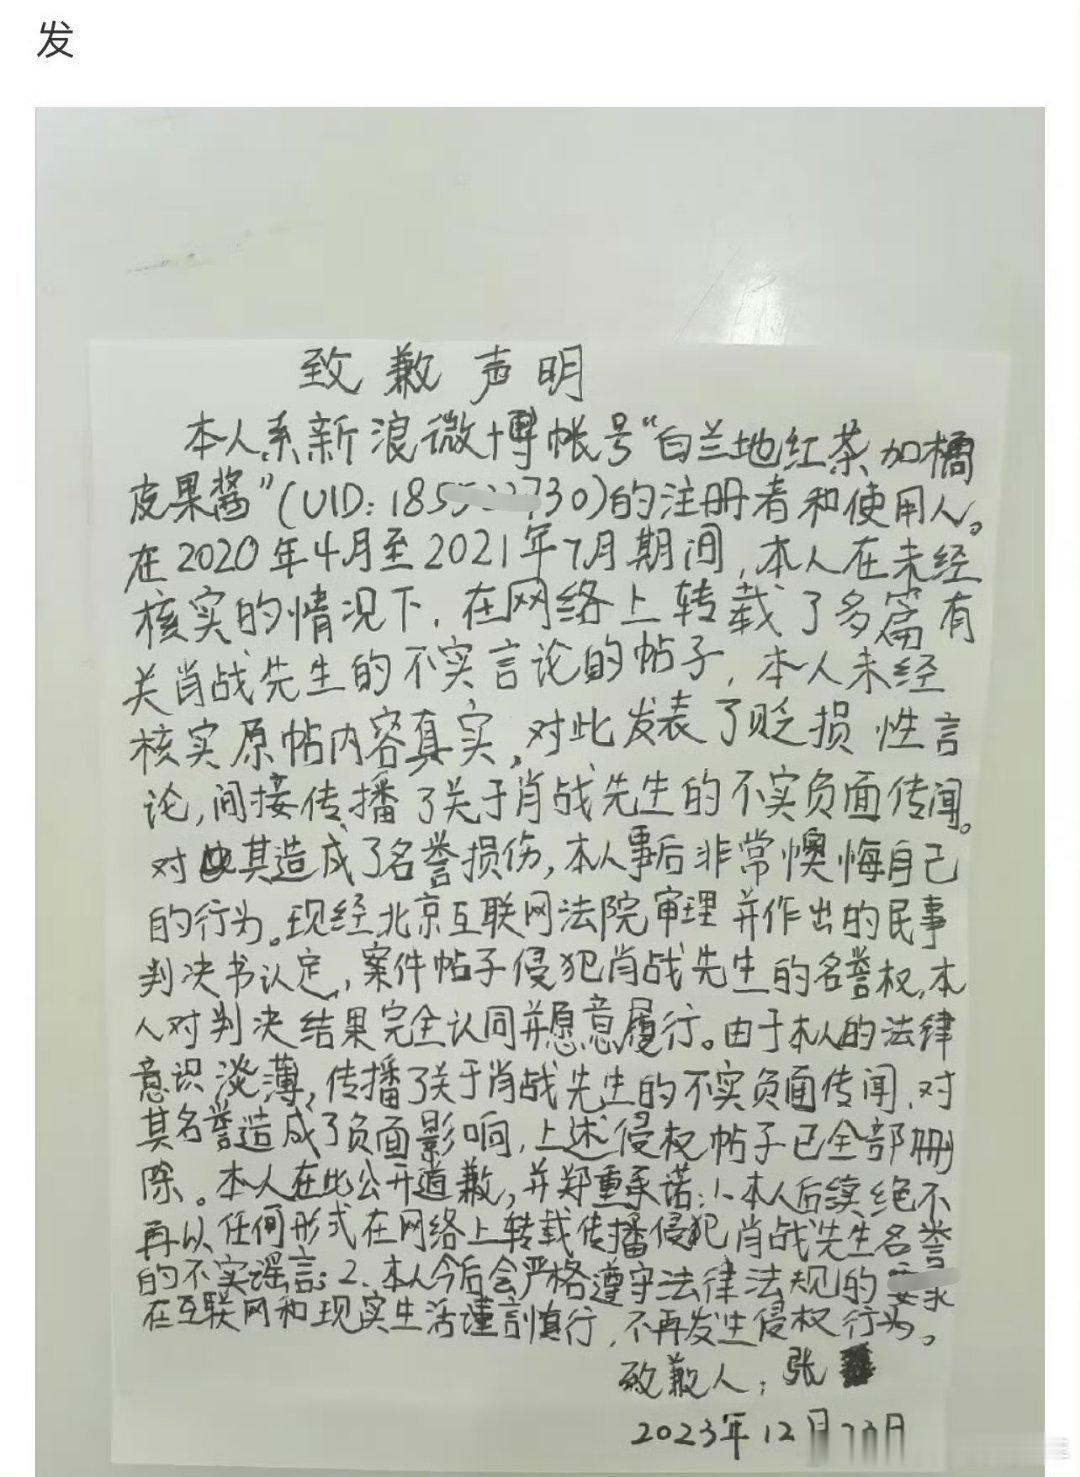 发
致歉声明
本人系新浪微博帐号“白兰地红茶加橘
皮果酱”(UID:185 730)的注册者和使用人。
在2020年4月至2021年7月期间,本人在未经
核实的情况下,在网络上转载了多篇有
关肖战先生的不实言论的帖子,本人未经
核实原帖内容真实,对此发表了贬损性言
论,间接传播了关于肖战先生的不实负面传闻。
对其造成了名誉损伤,本人事后非常懊悔自己
的行为。现经北京互联网法院审理并作出的民事
判决书认定,案件帖子侵犯肖战先生的名誉权,本
人对判决结果完全认同并愿意履行。由于本人的法律
意识淡薄,传播了关于肖战先生的不实负面传闻,对
其名誉造成了负面影响,上述侵权帖子已全部删
除。本人在此公开道歉,并郑重承诺:1、本人后续绝不
再以任何形式在网络上转载传播侵犯肖战先生名誉
的不实谣言;2、本人今后会严格遵守法律法规的要求
在互联网和现实生活谨言慎行,不再发生侵权行为。
致歉人:张
2023年12月 日